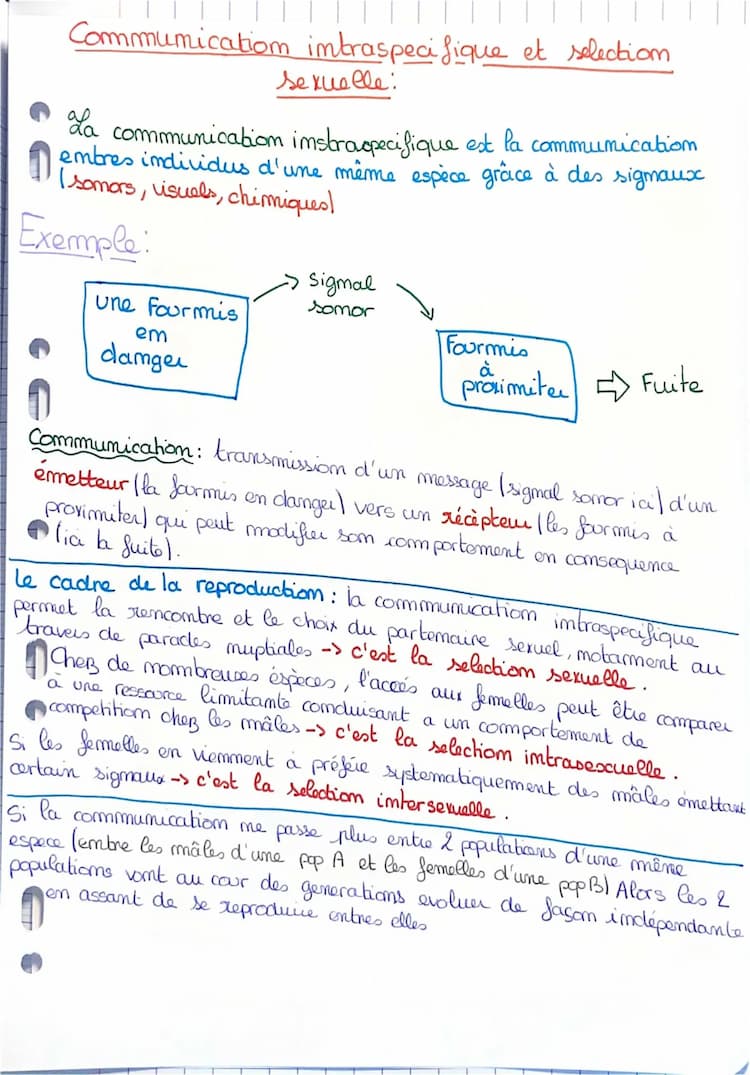 Communication intraspecifique et selection
sexuelle:
La communication instraspecifique est la communication
entres individus d'une même espèce grâce à des signaux
(sonors, visuels, chimiques)
Exemple:
une Fourmis
en
danger
signal
sonor
Fourmis
à
proximiter
Fuite
Communication: transmission d'un message (signal sonor ici) d'un
émetteur (la fourmis en danger) vers un récèpteur (les fourmis à
proximiter) qui peut modifier son comportement en consequence
(ici la fuite).
Le cadre de la reproduction: la communication intraspecifique
permet la rencontre et le choix du partenaire sexuel, notamment au
travers de parades nuptiales -> c'est la selection sexuelle.
Chez de nombreuses éspèces, l'accés aux femelles peut être comparer
à une ressource limitante conduisant a un comportement de
competition chez les mâles -> c'est la selection intrasexuelle.
Si les femelles en viennent à préféré systematiquement des mâles émettant
certain signaux -> c'est la selection intersexuelle.
Si la communication ne passe plus entre 2 populations d'une même
espece (entre les mâles d'une pop A et les femelles d'une pop B) Alors les 2
populations vont au cour des generations evoluer de façon indépendante
en assant de se reproduire entres elles